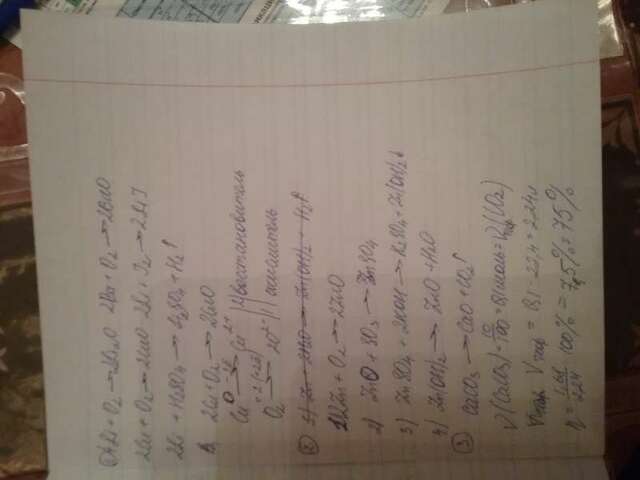 4Li + O₂ → 2Li₂O 2Ba + O₂ → 2BaO
2Cu + O₂ → 2CuO 2Li + I₂ → 2LiI
2Li + H₂SO₄ → Li₂SO₄ + H₂↑
2Cu + O₂ → 2CuO
Cu⁰ -2ē → Cu²⁺ | 2 | восстановитель
O₂ +2(+2ē) → 2O²⁻ | 1 | окислитель
② 1) Zn + 2H₂O → Zn(OH)₂ + H₂↑
1) 2Zn + O₂ → 2ZnO
2) ZnO + SO₃ → ZnSO₄
3) ZnSO₄ + 2KOH → K₂SO₄ + Zn(OH)₂↓
4) Zn(OH)₂ → ZnO + H₂O
③ CaCO₃ → CaO + CO₂↑
ν(CaCO₃) = 10/100 = 0,1 моль = ν(CO₂)
Vтеор = 0,1 · 22,4 = 2,24л
η = 1,68/2,24 · 100% = 7,5% = 75%